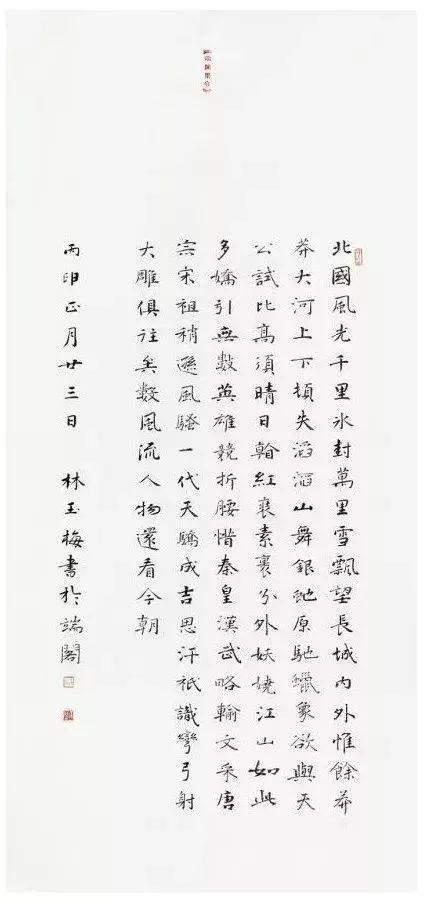 北國風光千里冰封萬里雪飄望長城內外惟餘莽
莽大河上下頓失滔滔山舞銀虵原馳蠟象欲與天
公試比高須晴日看紅裝素裹分外妖嬈江山如此
多嬌引無數英雄競折腰惜秦皇漢武略輸文采唐
宗宋祖稍遜風騷一代天驕成吉思汗祇識彎弓射
大雕俱往矣數風流人物還看今朝
丙申正月廿三日 林玉梅書於端閣